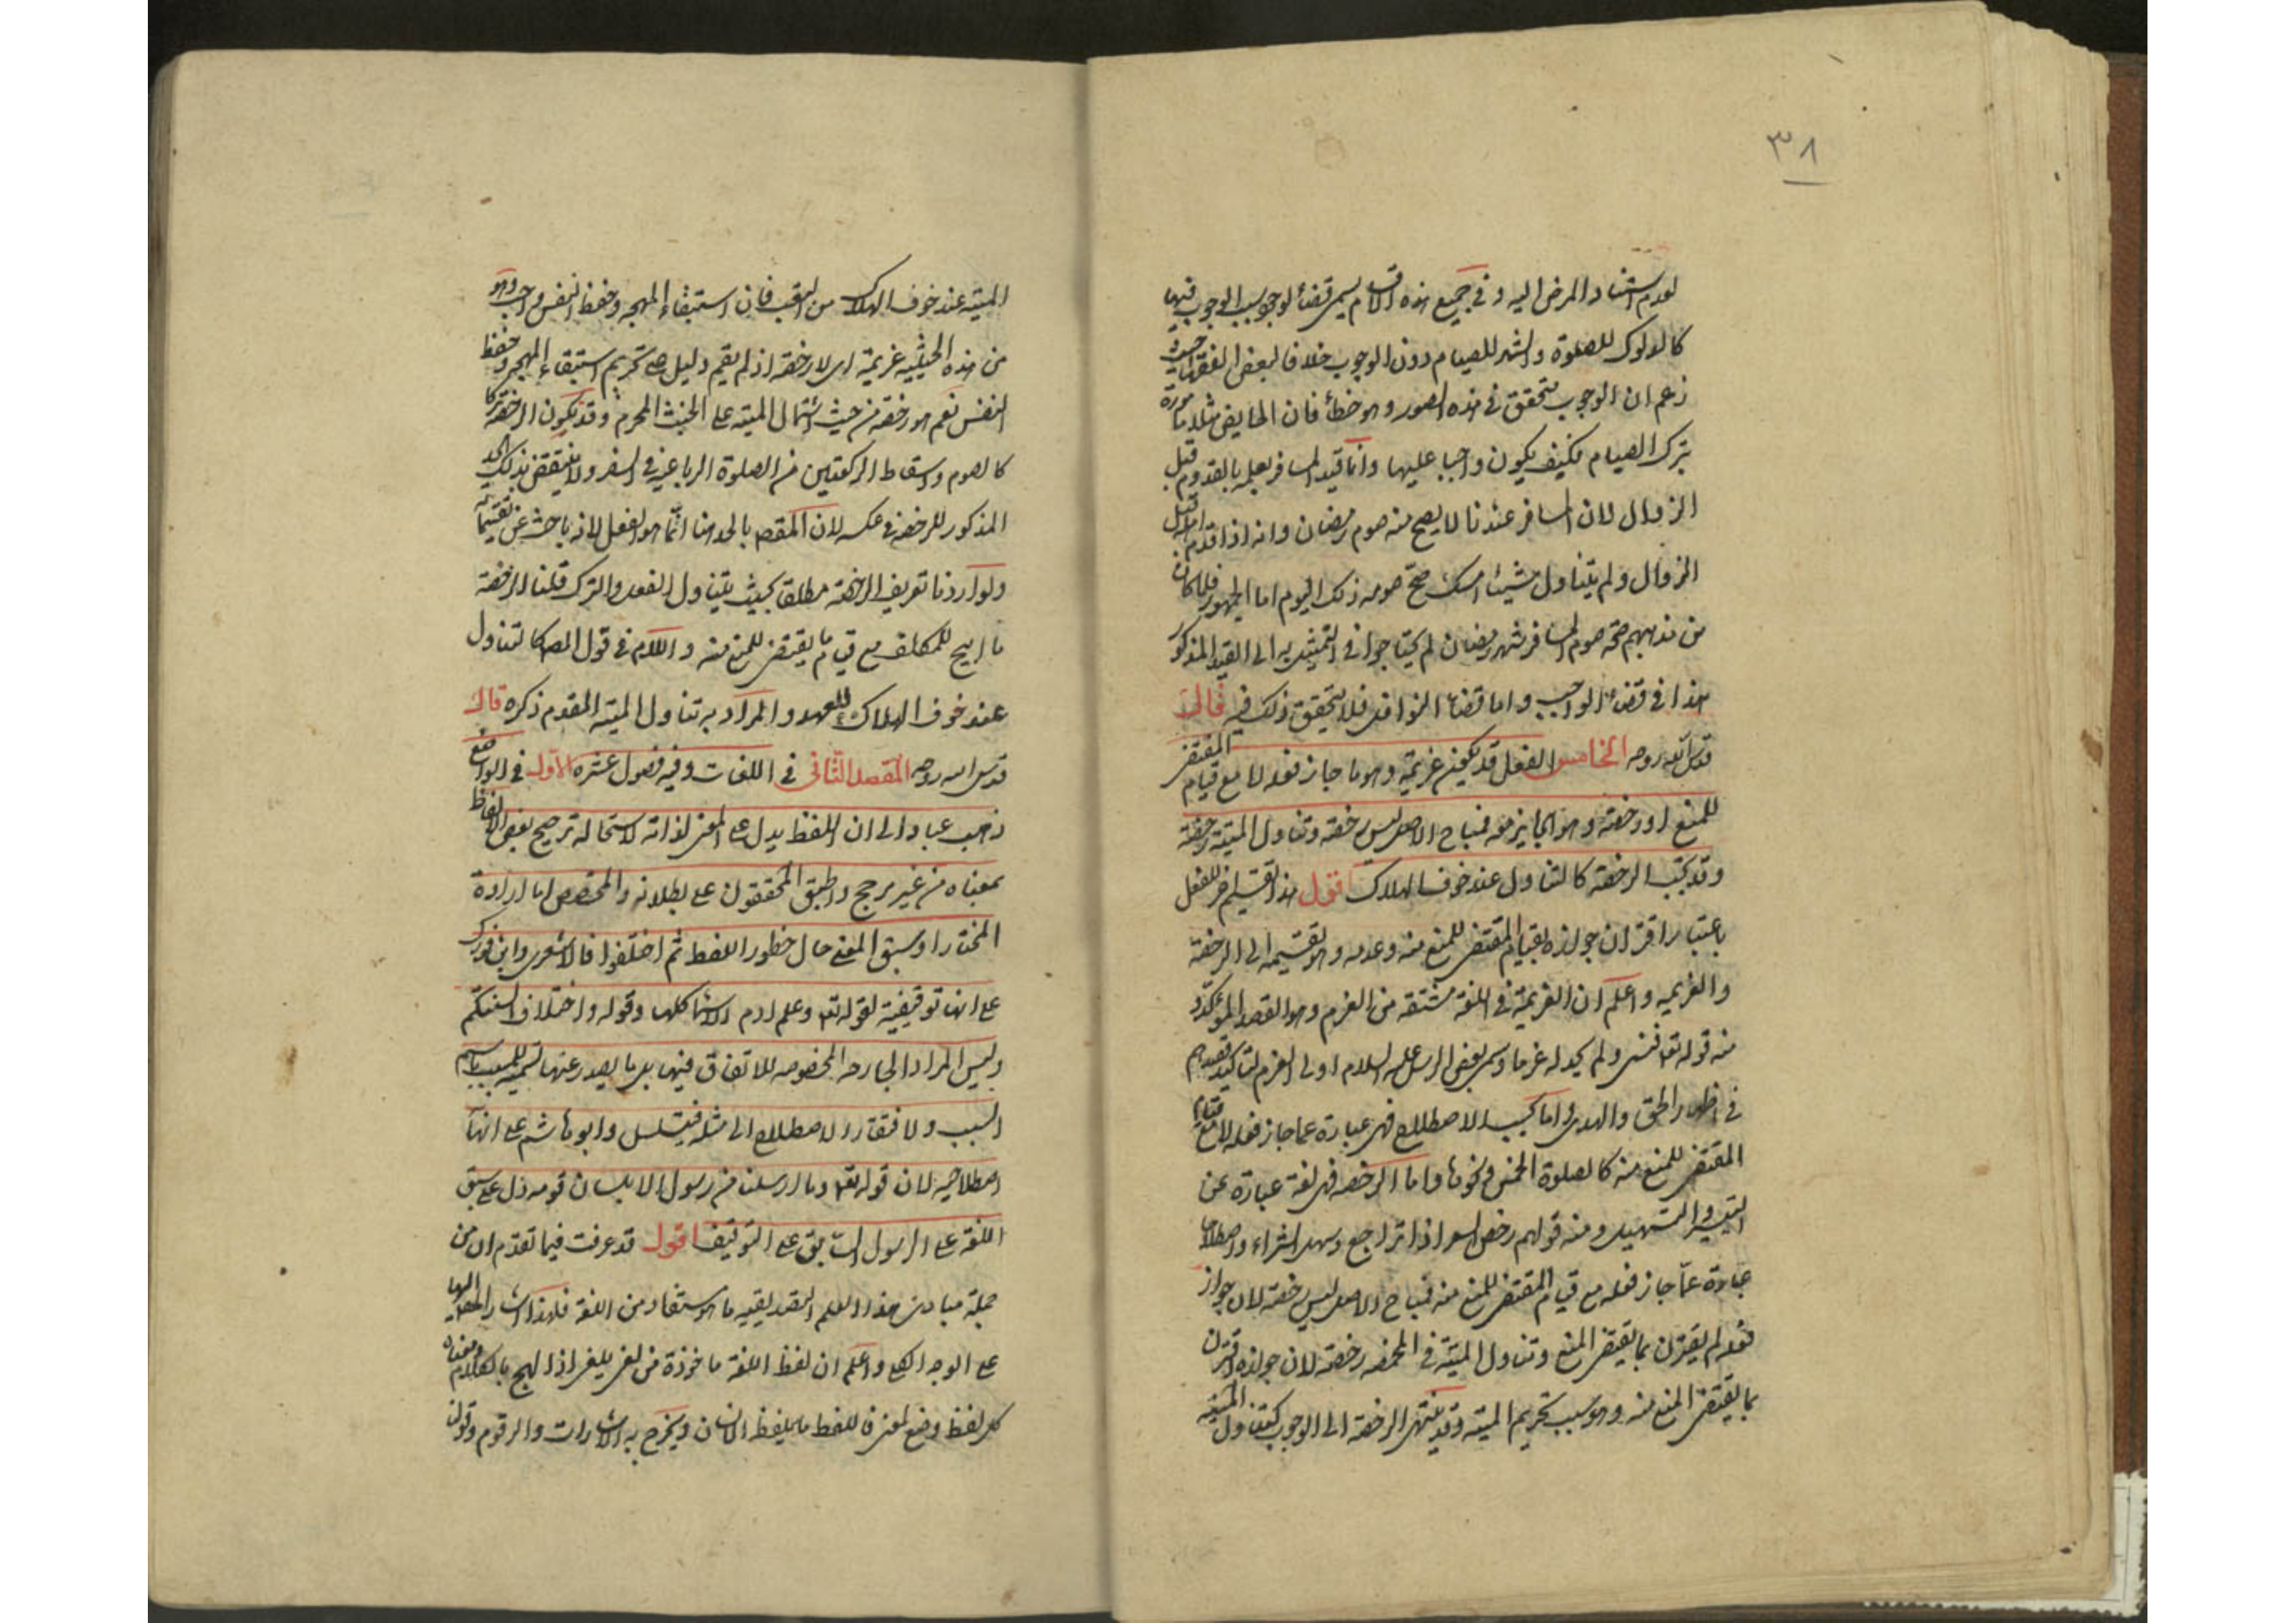 ٣٨
لعدم استناد المرض اليه وفي جميع هذه الاقسام يسمى قضاء لوجود سبب الوجوب فيها
كالدلوك للصلوة والشهر للصيام دون الوجوب خلافا لبعض الفقهاء حيث
زعم ان الوجوب متحقق في هذه الصور وهو خطأ فان الحايض مثلا مامورة
بترك الصيام فكيف يكون واجبا عليها وانما قيد المسافر بعلمه بالقدوم قبل
الزوال لان المسافر عندنا لا يصح منه صوم رمضان وانه اذا قدم اهله قبل
الزوال ولم يتناول شيئا امسك صح صومه ذلك اليوم اما الجمهور فلما كان
من مذهبهم صحة صوم المسافر شهر رمضان لم يحتاجوا في التمثيل به الى القيد المذكور
هذا في قضاء الواجب واما قضاء النوافل فلا يتحقق ذلك فيه قال
قدس الله روحه الخامس الفعل قد يكون عزيمة وهو ما جاز فعله لا مع قيام المقتضى
للمنع او رخصة وهو الجايز معه فمباح الاصل ليس رخصة وتناول الميتة رخصة
وقد تجب الرخصة كالتناول عند خوف الهلاك اقول هذا تقسيم اخر للفعل
باعتبار اقتران جوازه بقيام المقتضى للمنع منه وعدمه وهو تقسيمه الى الرخصة
والعزيمه واعلم ان العزيمة في اللغة مشتقه من العزم وهو القصد المؤكد
منه قوله تعا فنسى ولم نجد له عزما وسمى بعض الرسل عليه السلام اولى العزم لتاكيد قصدهم
في اظهار الحق والهدى واما بحسب الاصطلاح فهى عبارة عما جاز فعله لا مع قيام
المقتضى للمنع منه كالصلوة الخمس ونحوها واما الرخصه فهى لغة عبارة عن
التيسير والتسهيل ومنه قولهم رخص السعر اذا تراجع وسهل الشراء واصطلاحا
عبارة عما جاز فعله مع قيام المقتضى للمنع منه فمباح الاصل ليس رخصة لان جواز
فعله لم يقترن بما يقتضى المنع وتناول الميتة في المخمصه رخصة لان جوازه اقترن
بما يقتضى المنع منه وهو سبب تحريم الميته وقد تنتهى الرخصة الى الوجوب كتناول الميته
الميته عند خوف الهلاك من السغب فان استبقاء المهجه وحفظ النفس واجب وهو
من هذه الحيثية عزيمة اى لا رخصة اذ لم يقم دليل على تحريم استبقاء المهجه وحفظ
النفس نعم هو رخصة من حيث اشتمال الميته على الخبث المحرم وقد يكون الرخصة تركا
كالصوم واسقاط الركعتين من الصلوة الرباعية في السفر ولا ينتقض بذلك الحد
المذكور للرخصة في عكسه لان المقصود بالحد هنا انما هو الفعل لانه باحث عن تقسيماته
ولو اردنا تعريف الرخصة مطلقا بحيث يتناول الفعل والترك قلنا الرخصة
ما ابيح للمكلف مع قيام ما يقتضى للمنع منه واللام في قول المص كالتناول
عند خوف الهلاك للعهد والمراد به تناول الميته المقدم ذكره قال
قدس الله روحه المقصد الثانى في اللغات وفيه فصول عشره الاول في الواضع
ذهب عباد الى ان اللفظ يدل على المعنى لذاته لاستحالة ترجيح بعض الالفاظ
بمعناه من غير مرجح واطبق المحققون على بطلانه والمخصص اما ارادة
المختار او سبق المعنى حال خطور اللفظ ثم اختلفوا فالاشعرى وابن فورك
على انها توقيفية لقوله تعا وعلم ادم الاسماء كلها وقوله واختلاف السنتكم
وليس المراد الجارحه المخصوصه للاتفاق فيها بل ما يصدر عنها تسمية للمسبب باسم
السبب ولافتقار الاصطلاح الى مثله فيتسلسل وابو هاشم على انها
اصطلاحيه لان قوله تعا وما ارسلنا من رسول الا بلسان قومه دل على سبق
اللغة على الرسول السابق على التوقيف اقول قد عرفت فيما تقدم ان من
جملة مبادئ هذا العلم التصديقيه ما هو مستفاد من اللغة فلهذا اشار المص اليها
على الوجه الكلى واعلم ان لفظ اللغة ماخوذة من لغى يلغى اذا لهج بالكلام ومعناه
كل لفظ وضع لمعنى فاللفظ ما يلفظه الانسان ويخرج به الاشارات والرقوم وقولنا